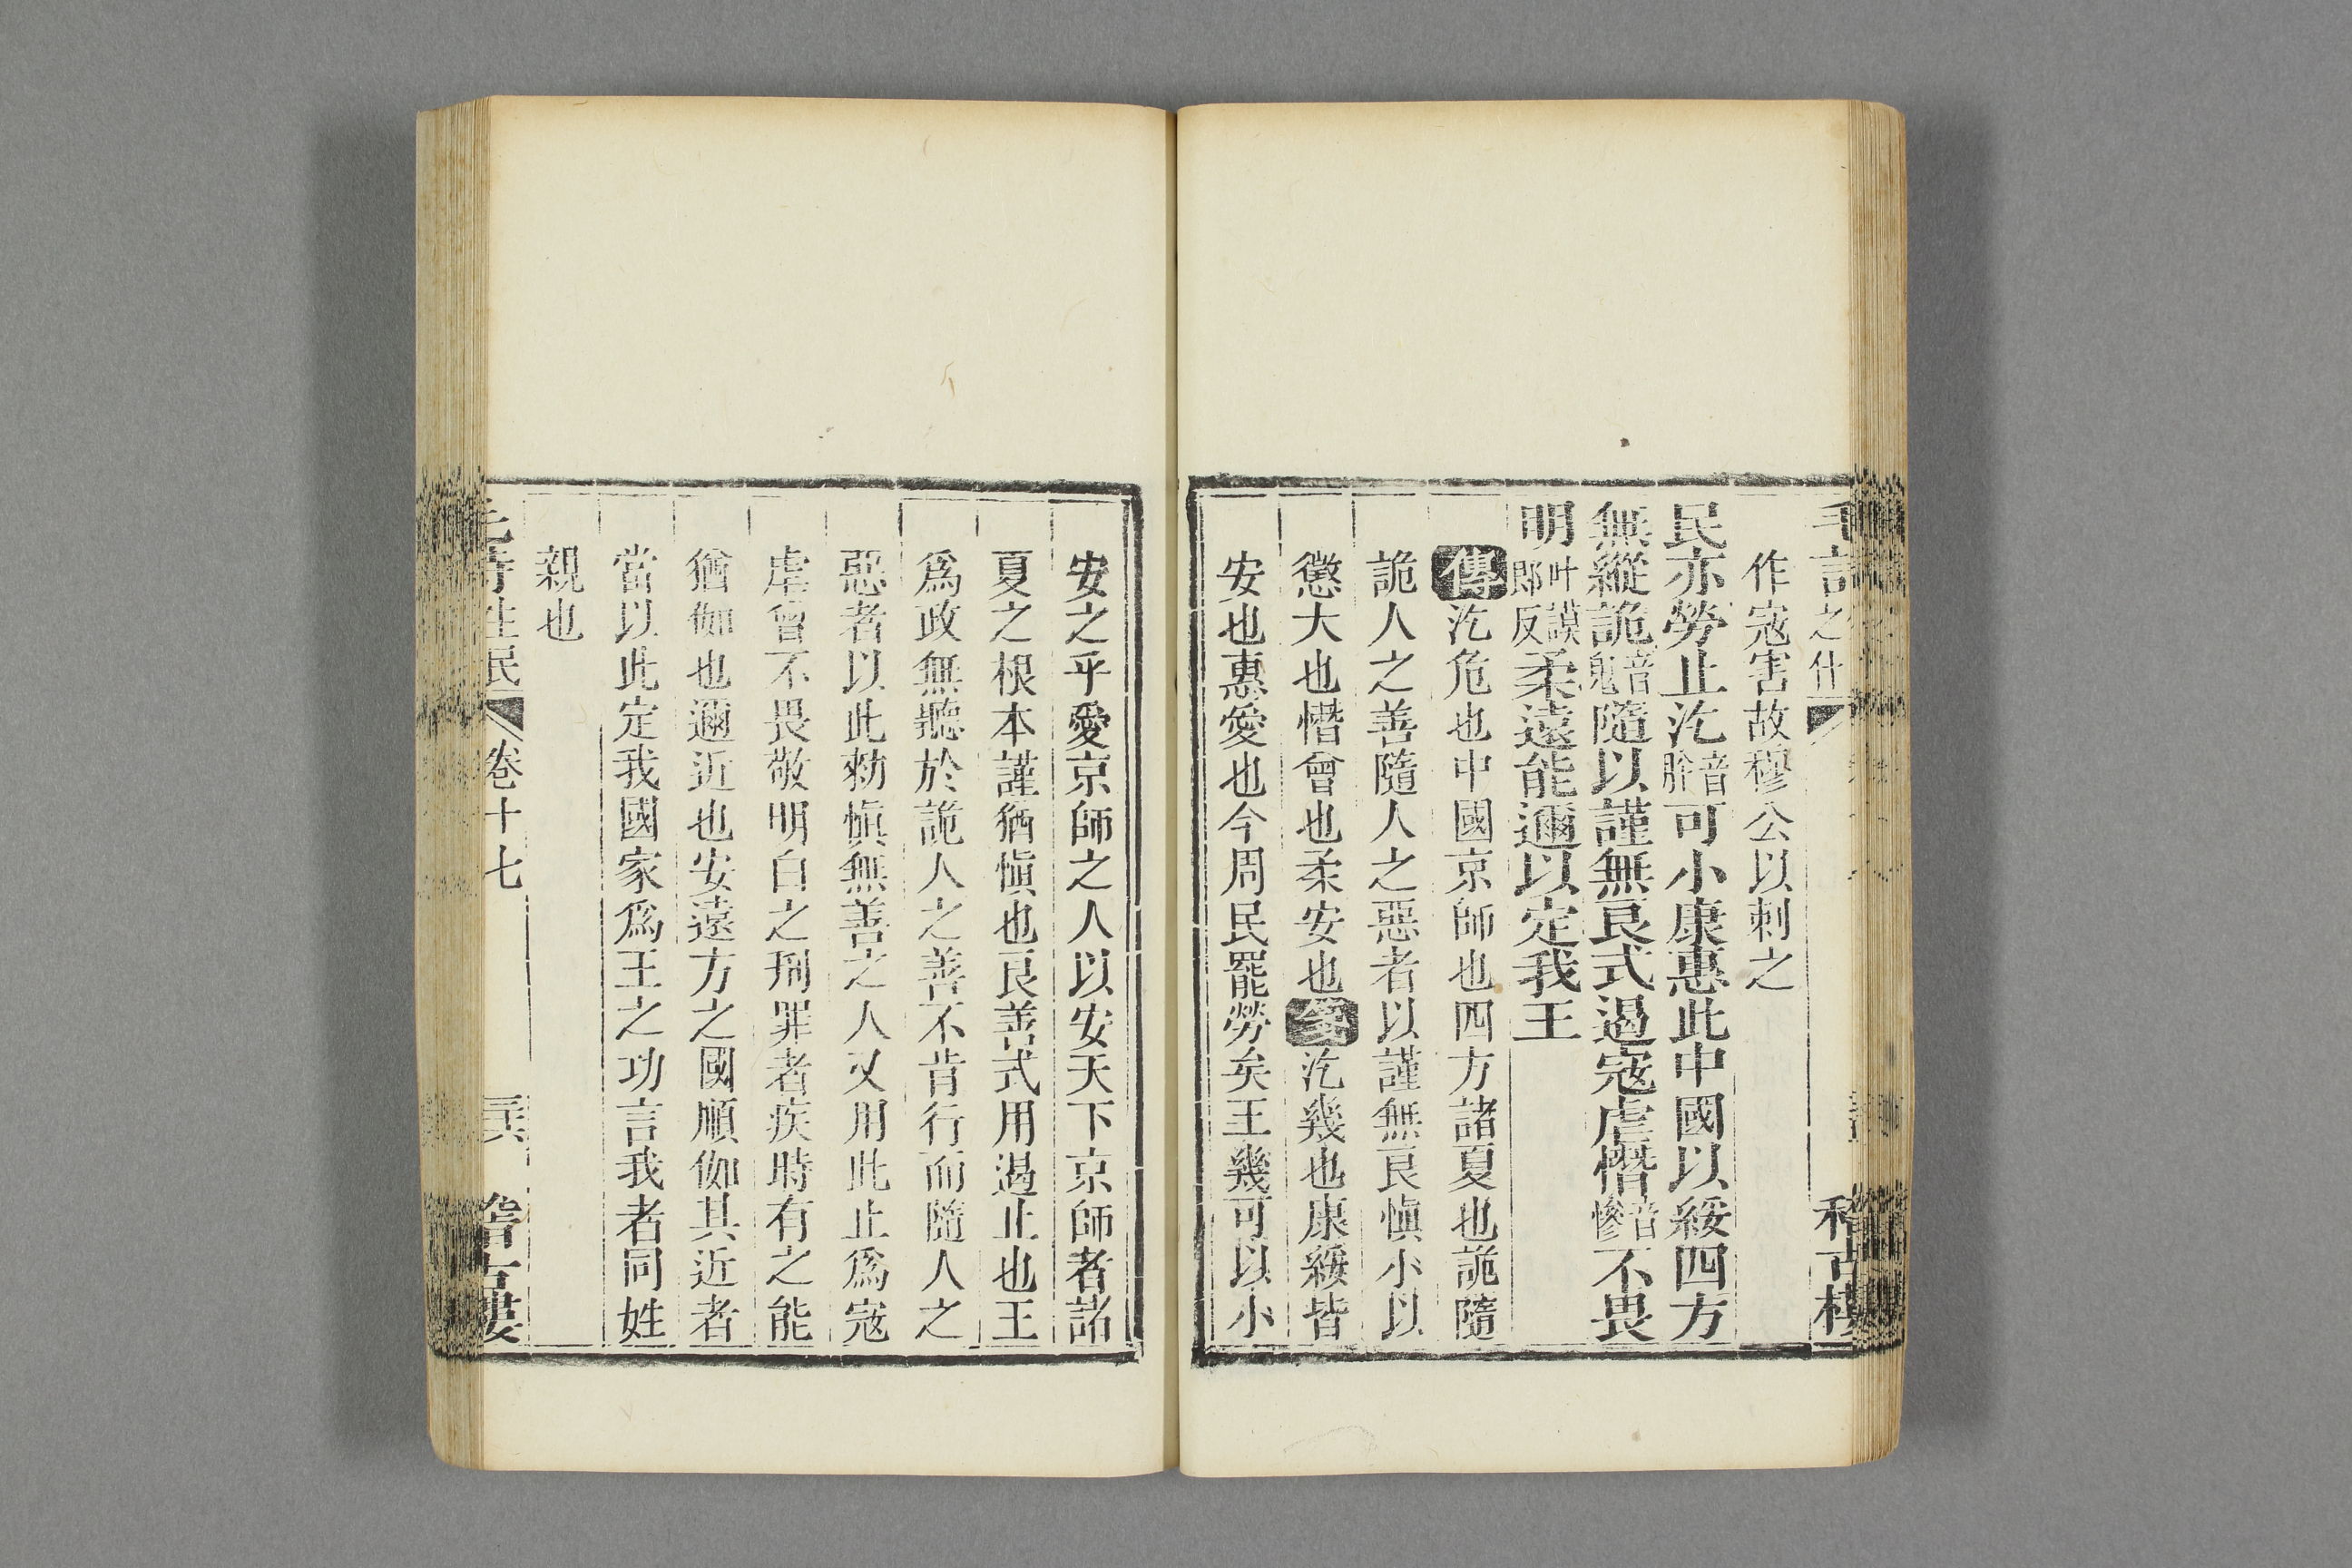 之什 稽古樓
作寇害故穆公以刺之
民亦勞止汔音肸可小康惠此中國以綏四方
無縱詭音鬼隨以謹無良式遏寇虐憯音慘不畏
明叶謨郎反柔遠能邇以定我王
傳汔危也中國京師也四方諸夏也詭隨
詭人之善隨人之惡者以謹無良慎小以
懲大也憯曾也柔安也箋汔幾也康綏皆
安也惠愛也今周民罷勞矣王幾可以小
安之乎愛京師之人以安天下京師者諸
夏之根本謹猶慎也良善式用遏止也王
爲政無聽於詭人之善不肯行而隨人之
惡者以此勑慎無善之人又用此止爲寇
虐曾不畏敬明白之刑罪者疾時有之能
猶伽也邇近也安遠方之國順伽其近者
當以此定我國家爲王之功言我者同姓
親也
毛詩生民 卷十七 稽古樓